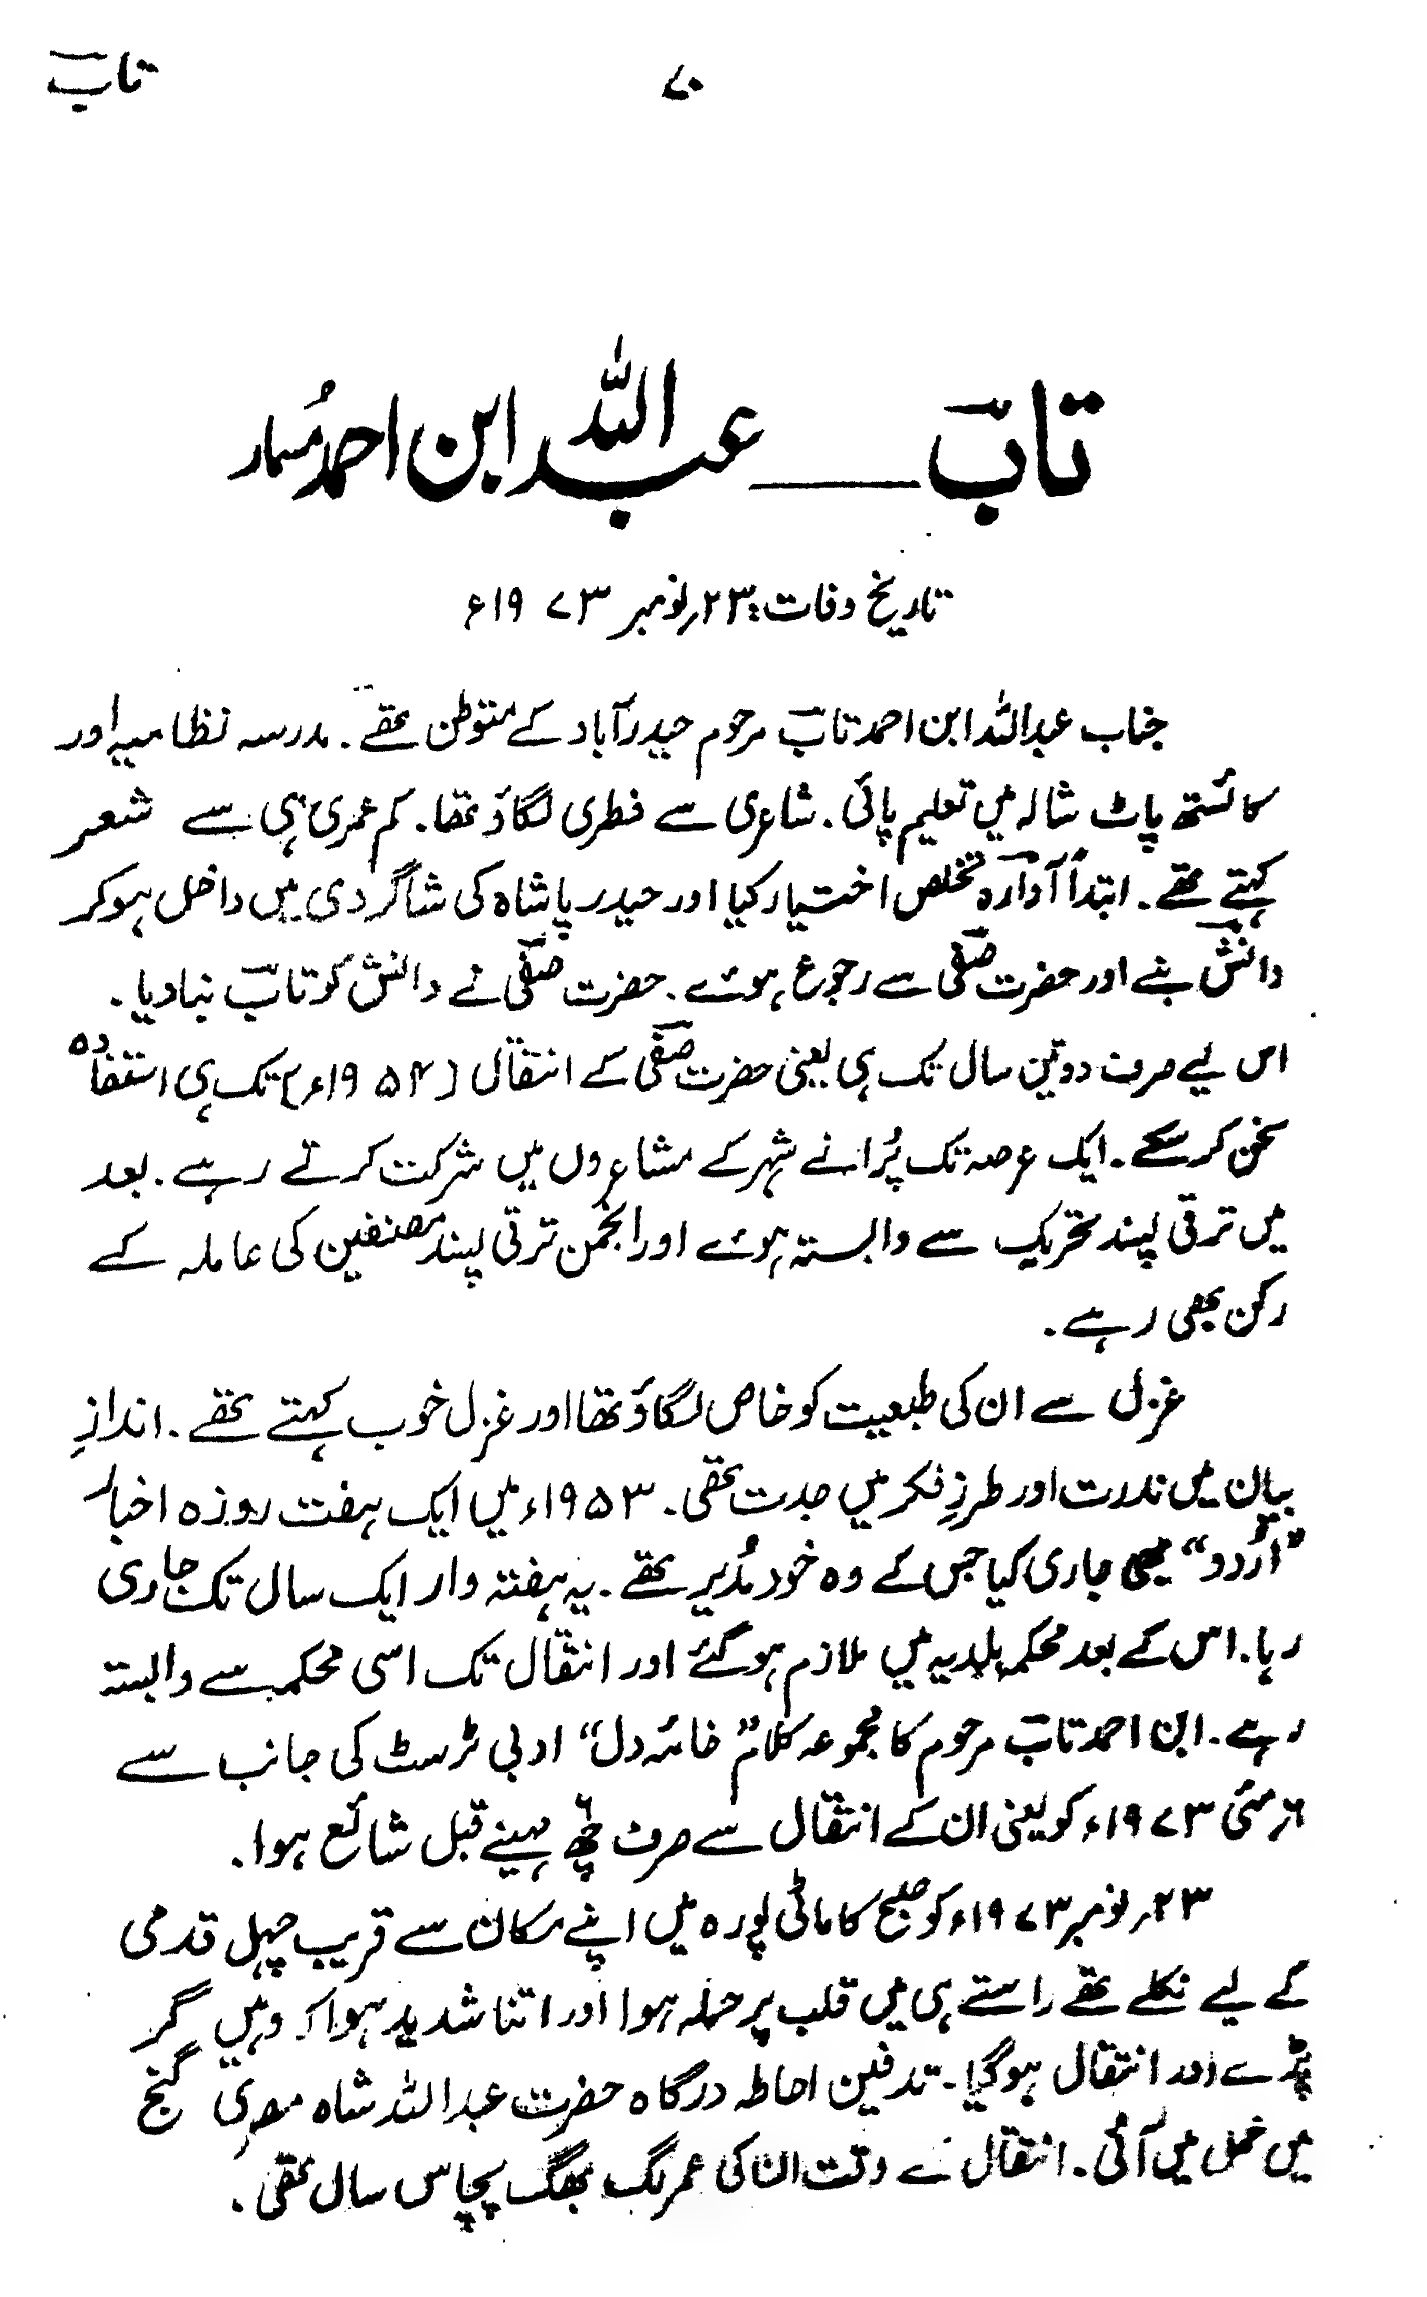 تابؔ
۷۰
تابؔ ــــ عبداللہ ابن احمد مُسمار
تاریخ وفات: ۲۳؍نومبر ۱۹۷۳ء
جناب عبداللہ ابن احمد تابؔ مرحوم حیدرآباد کے متوطن تھے۔ مدرسہ نظامیہ اور
کائستھ پاٹ شالہ میں تعلیم پائی۔ شاعری سے فطری لگاؤ تھا۔ کم عمری ہی سے شعر
کہتے تھے۔ ابتداً آوارہؔ تخلص اختیار کیا اور حیدر پاشاہ کی شاگردی میں داخل ہوکر
دانشؔ بنے اور حضرت صفیؔ سے رجوع ہوئے۔ حضرت صفیؔ نے دانشؔ کو تابؔ بنا دیا۔
اس لیے صرف دو تین سال تک ہی یعنی حضرت صفیؔ کے انتقال [۱۹۵۴ء] تک ہی استفادہ
سخن کر سکے۔ ایک عرصہ تک پُرانے شہر کے مشاعروں میں شرکت کرتے رہے۔ بعد
میں ترقی پسند تحریک سے وابستہ ہوئے اور انجمن ترقی پسند مصنفین کی عاملہ کے
رکن بھی رہے۔
غزل سے ان کی طبعیت کو خاص لگاؤ تھا اور غزل خوب کہتے تھے۔ اندازِ
بیان میں ندرت اور طرزِ فکر میں جدت تھی۔ ۱۹۵۳ء میں ایک ہفت روزہ اخبار
”اُردو“ بھی جاری کیا جس کے وہ خود مُدیر تھے۔ یہ ہفتہ وار ایک سال تک جاری
رہا۔ اس کے بعد محکمہ بلدیہ میں ملازم ہوگئے اور انتقال تک اسی محکمہ سے وابستہ
رہے۔ ابن احمد تابؔ مرحوم کا مجموعہ کلام ”خانہ دل“ ادبی ٹرسٹ کی جانب سے
۶؍مئی ۱۹۷۳ء کو یعنی ان کے انتقال سے صرف ۶ چھ مہینے قبل شائع ہوا۔
۲۳؍نومبر ۱۹۷۳ء کو صبح کاماٹی پورہ میں اپنے مکان سے قریب چہل قدمی
کے لیے نکلے تھے راستے ہی میں قلب پر حملہ ہوا اور اتنا شدید ہوا کہ وہیں گر
پڑے اور انتقال ہوگیا۔ تدفین احاطہ درگاہ حضرت عبداللہ شاہ مصری گنج
میں عمل میں آئی۔ انتقال کے وقت ان کی عمر لگ بھگ پچاس سال تھی۔